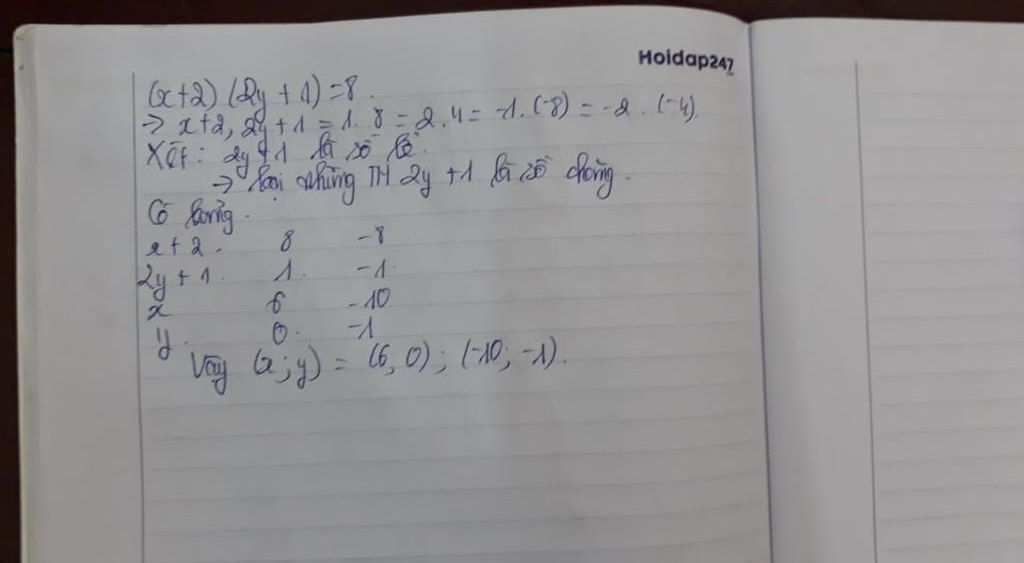 Hoidap247
(x+2) (2y + 1) = 8.
→ x+2, 2y+1 = 1. 8 = 2.4 = -1.(-8) = -2.(-4).
Xét: 2y+1 là số lẻ.
→ loại những TH 2y +1 là số chẵng.
Có bảng.
x+2. 8 -8
2y + 1. 1. -1.
x 6 -10
y. 0. -1
Vậy (x;y) = (6; 0) ; (-10; -1).